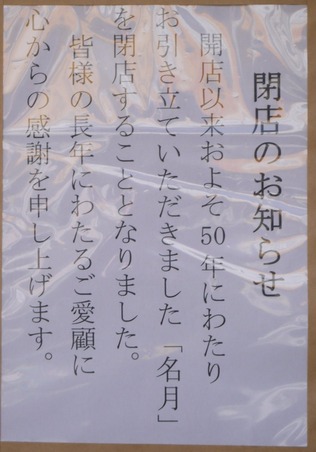 閉店のお知らせ
開店以来およそ50年にわたり
お引き立ていただきました「名月」
を閉店することとなりました。
皆様の長年にわたるご愛顧に
心からの感謝を申し上げます。